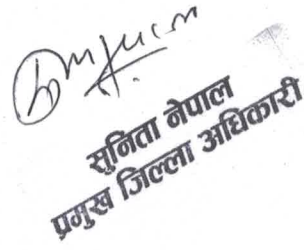 सुनिता नेपाल
प्रमुख जिल्ला अधिकारी